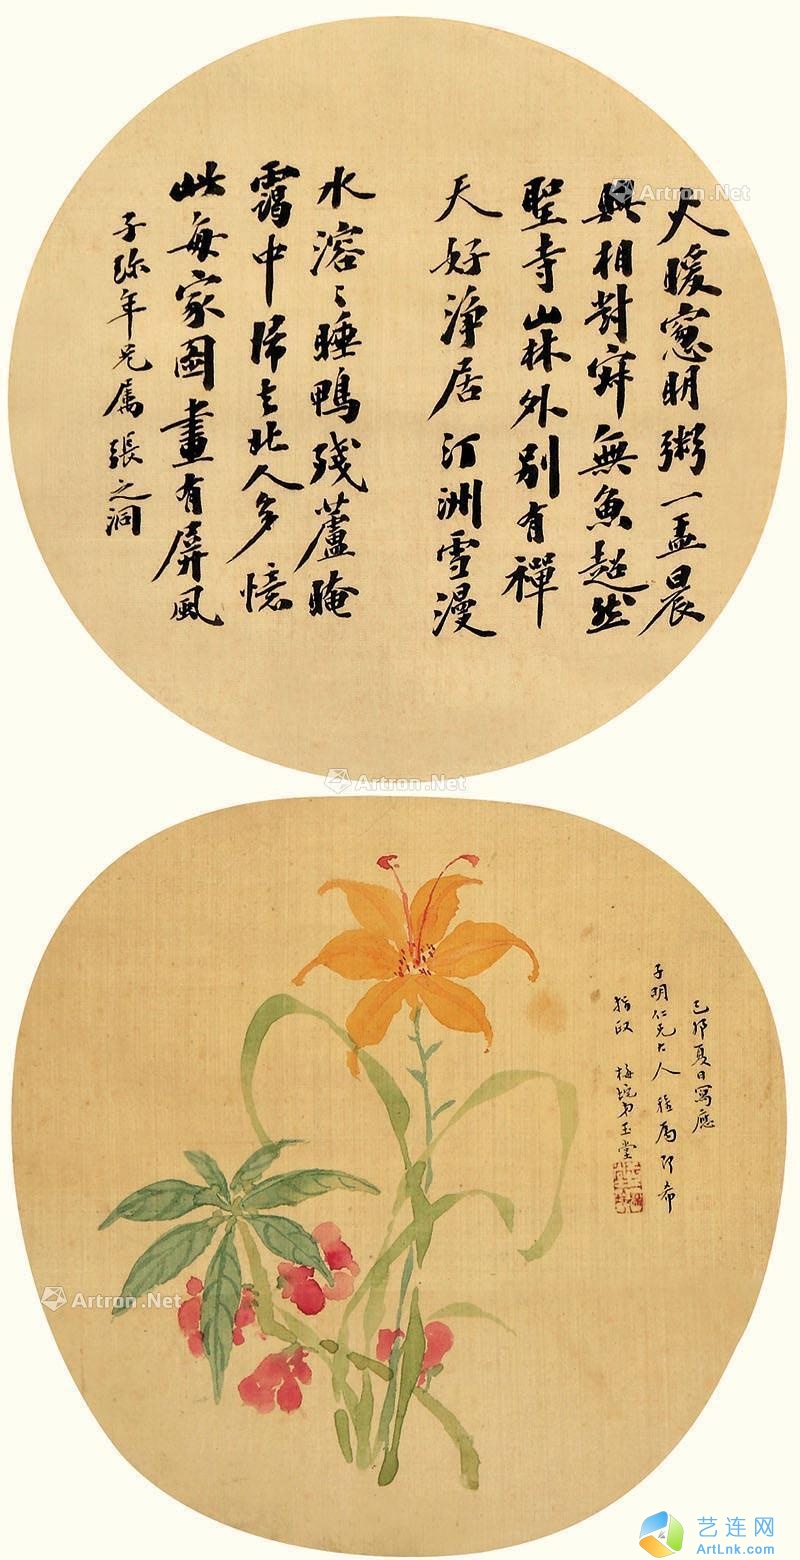 火暖窻明粥一盂晨
興相對寂無魚超然
聖寺山林外別有禪
天好淨居汀洲雪漫
水溶〻睡鴨殘蘆晻
靄中歸去北人多憶
此每家圖畫有屏風
子弥年兄属張之洞
己卯夏日寫應
子明仁兄大人 雅屬即希
指政 梅垞弟玉堂
Artron.Net
Artron.Net
Artron.Net
艺连网
ArtLnk.com